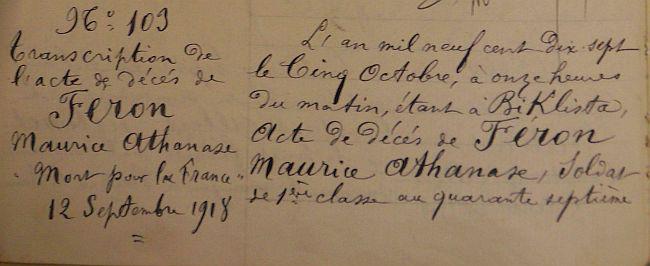 No: 103
Transcription de
l'acte de décés de
Féron
Maurice Athanase
"Mort pour la France"
12 Septembre 1918
=
L'an mil neuf cent dix-sept
le Cinq Octobre, à onze heures
du matin, étant à Biklista,
Acte de décés de Féron
Maurice Athanase, Soldat
de 1ère classe au quarante septième